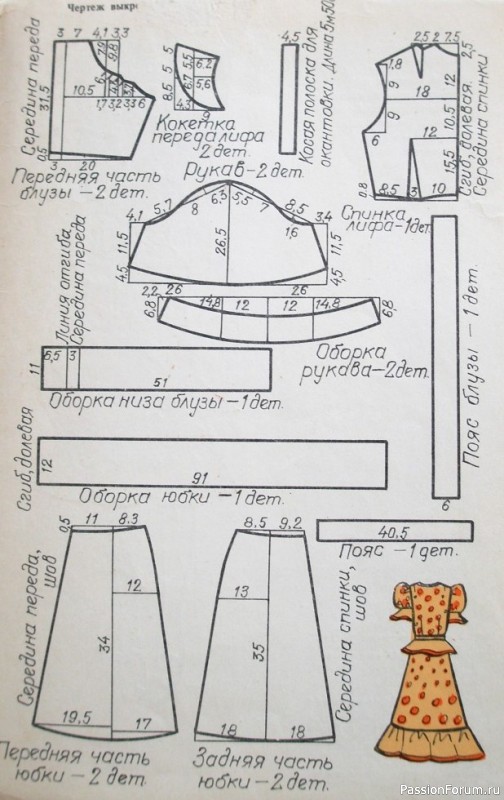 Чертеж выкр
Середина переда
3 7 4,1 3,3
7,9 9,8
31,5
10,5
1,7 3,2 3,3 6
0,5
3 20
Передняя часть
блузы — 2 дет.
5
5
6,7 5,5 6,2
8,5
5,6
4,3
9
Кокетка
переда лифа
2 дет.
4,5
Косая полоска для
окантовки. Длина 5м50
2,5 2 7,5
2,5
7,8
9
18
12
9
10,5
6
12
15,5
0,8
8,5 3 10
Сгиб, долевая.
Середина спинки
Спинка
лифа — 1 дет.
Рукав — 2 дет.
4,1 5,7 8 6,3 5,5 7 8,5 3,4
1,6
11,5 26,5 11,5
4,5 4,5
2,2 26 26
6,8 14,8 12 12 14,8 6,8
Оборка
рукава — 2 дет.
Линия отгиба,
Середина переда
11 6,5 3
51
Оборка низа блузы — 1 дет.
Пояс блузы — 1 дет.
6
Сгиб, долевая
12
91
Оборка юбки — 1 дет.
40,5
Пояс — 1 дет.
0,5 11 8.3
Середина переда,
шов
12
34
19.5 17
Передняя часть
юбки — 2 дет.
8,5 9,2
13
35
18 18
Середина спинки,
шов
Задняя часть
юбки — 2 дет.
PassionForum.ru